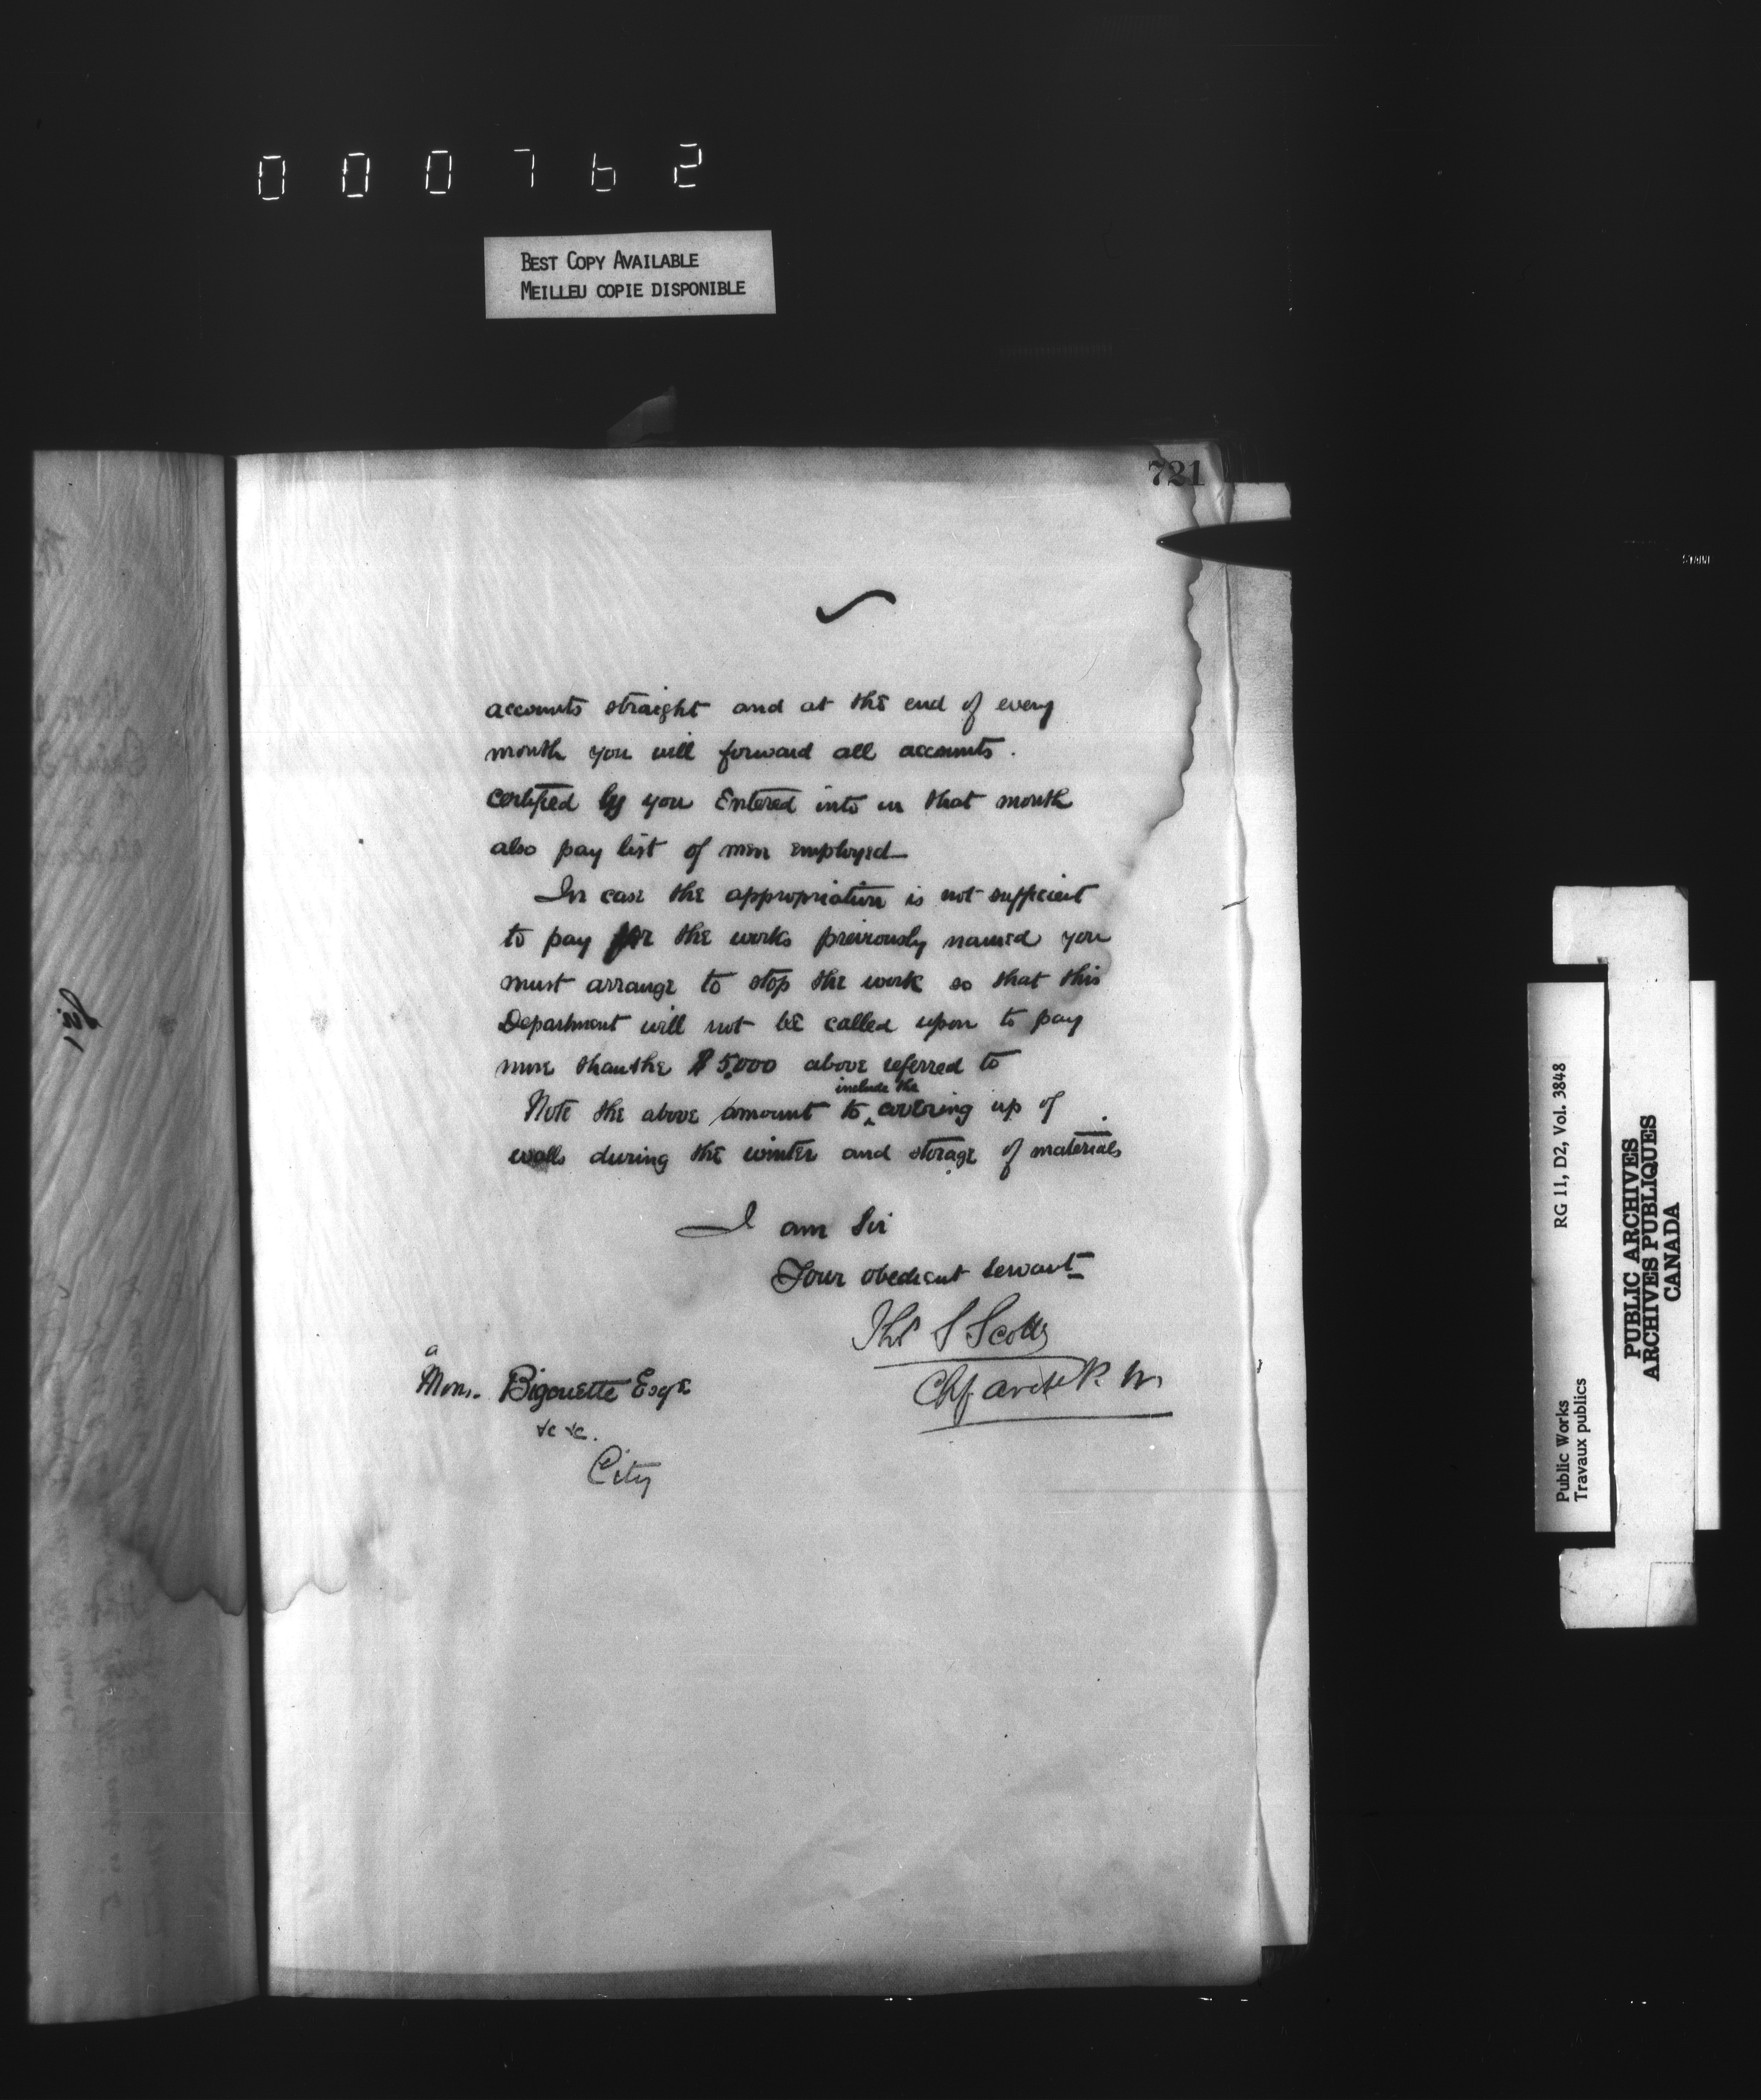 000762
BEST COPY AVAILABLE
MEILLEU COPIE DISPONIBLE
721
accounts straight and at the end of every
month you will forward all accounts.
certified by you Entered into in that month
also pay list of men employed—
In case the appropriation is not sufficient
to pay for the works previously named you
must arrange to stop the work so that this
Department will not be called upon to pay
more than the $5,000 above referred to
include the
Note the above amount to ‸ covering up of
walls during the winter and storage of materials
I am Sir
Your obedient Servant
Thos S Scott
Chf Archt P. W.
a
Mons. Bigouette Esqe
&c &c.
City
Sir
Public Works
Travaux publics
RG 11, D2, Vol. 3848
PUBLIC ARCHIVES
ARCHIVES PUBLIQUES
CANADA